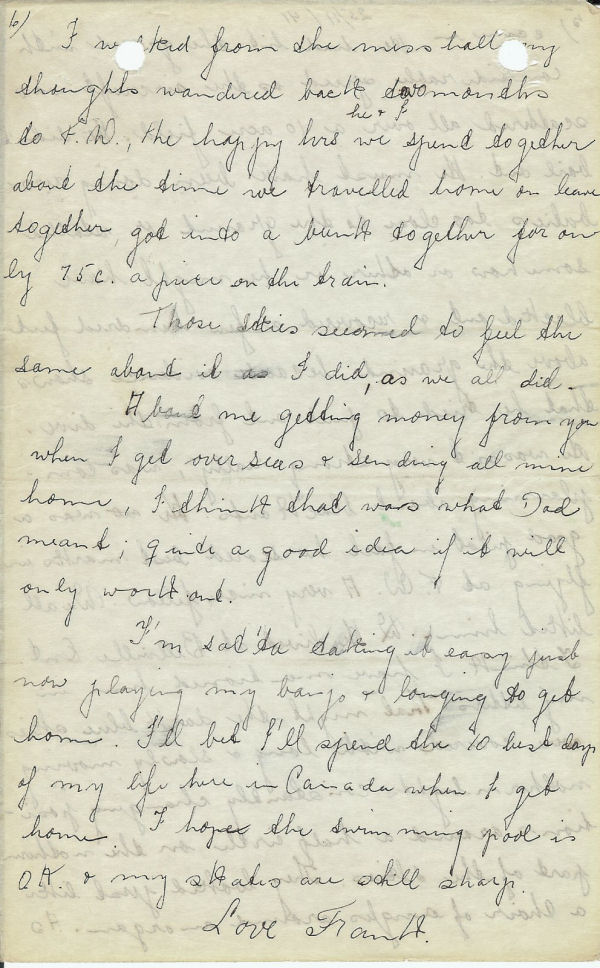 6)
I walked from the mess hall my
thoughts wandered back two months
he & I
to F.W., the happy hrs we spend together
about the time we travelled home on leave
together, got into a bunk together for on
ly 75c. a piece on the train.
Those skies seemed to feel the
same about it as I did, as we all did.
About me getting money from you
when I get overseas & sending all mine
home, I think that was what Dad
meant; quite a good idea if it will
only work out.
I'm sat'ta taking it easy just
now playing my banjo & longing to get
home. I'll bet I'll spend the 10 best days
of my life here in Canada when I get
home. I hope the swimming pool is
O.K. & my skates are still sharp.
Love Frank.